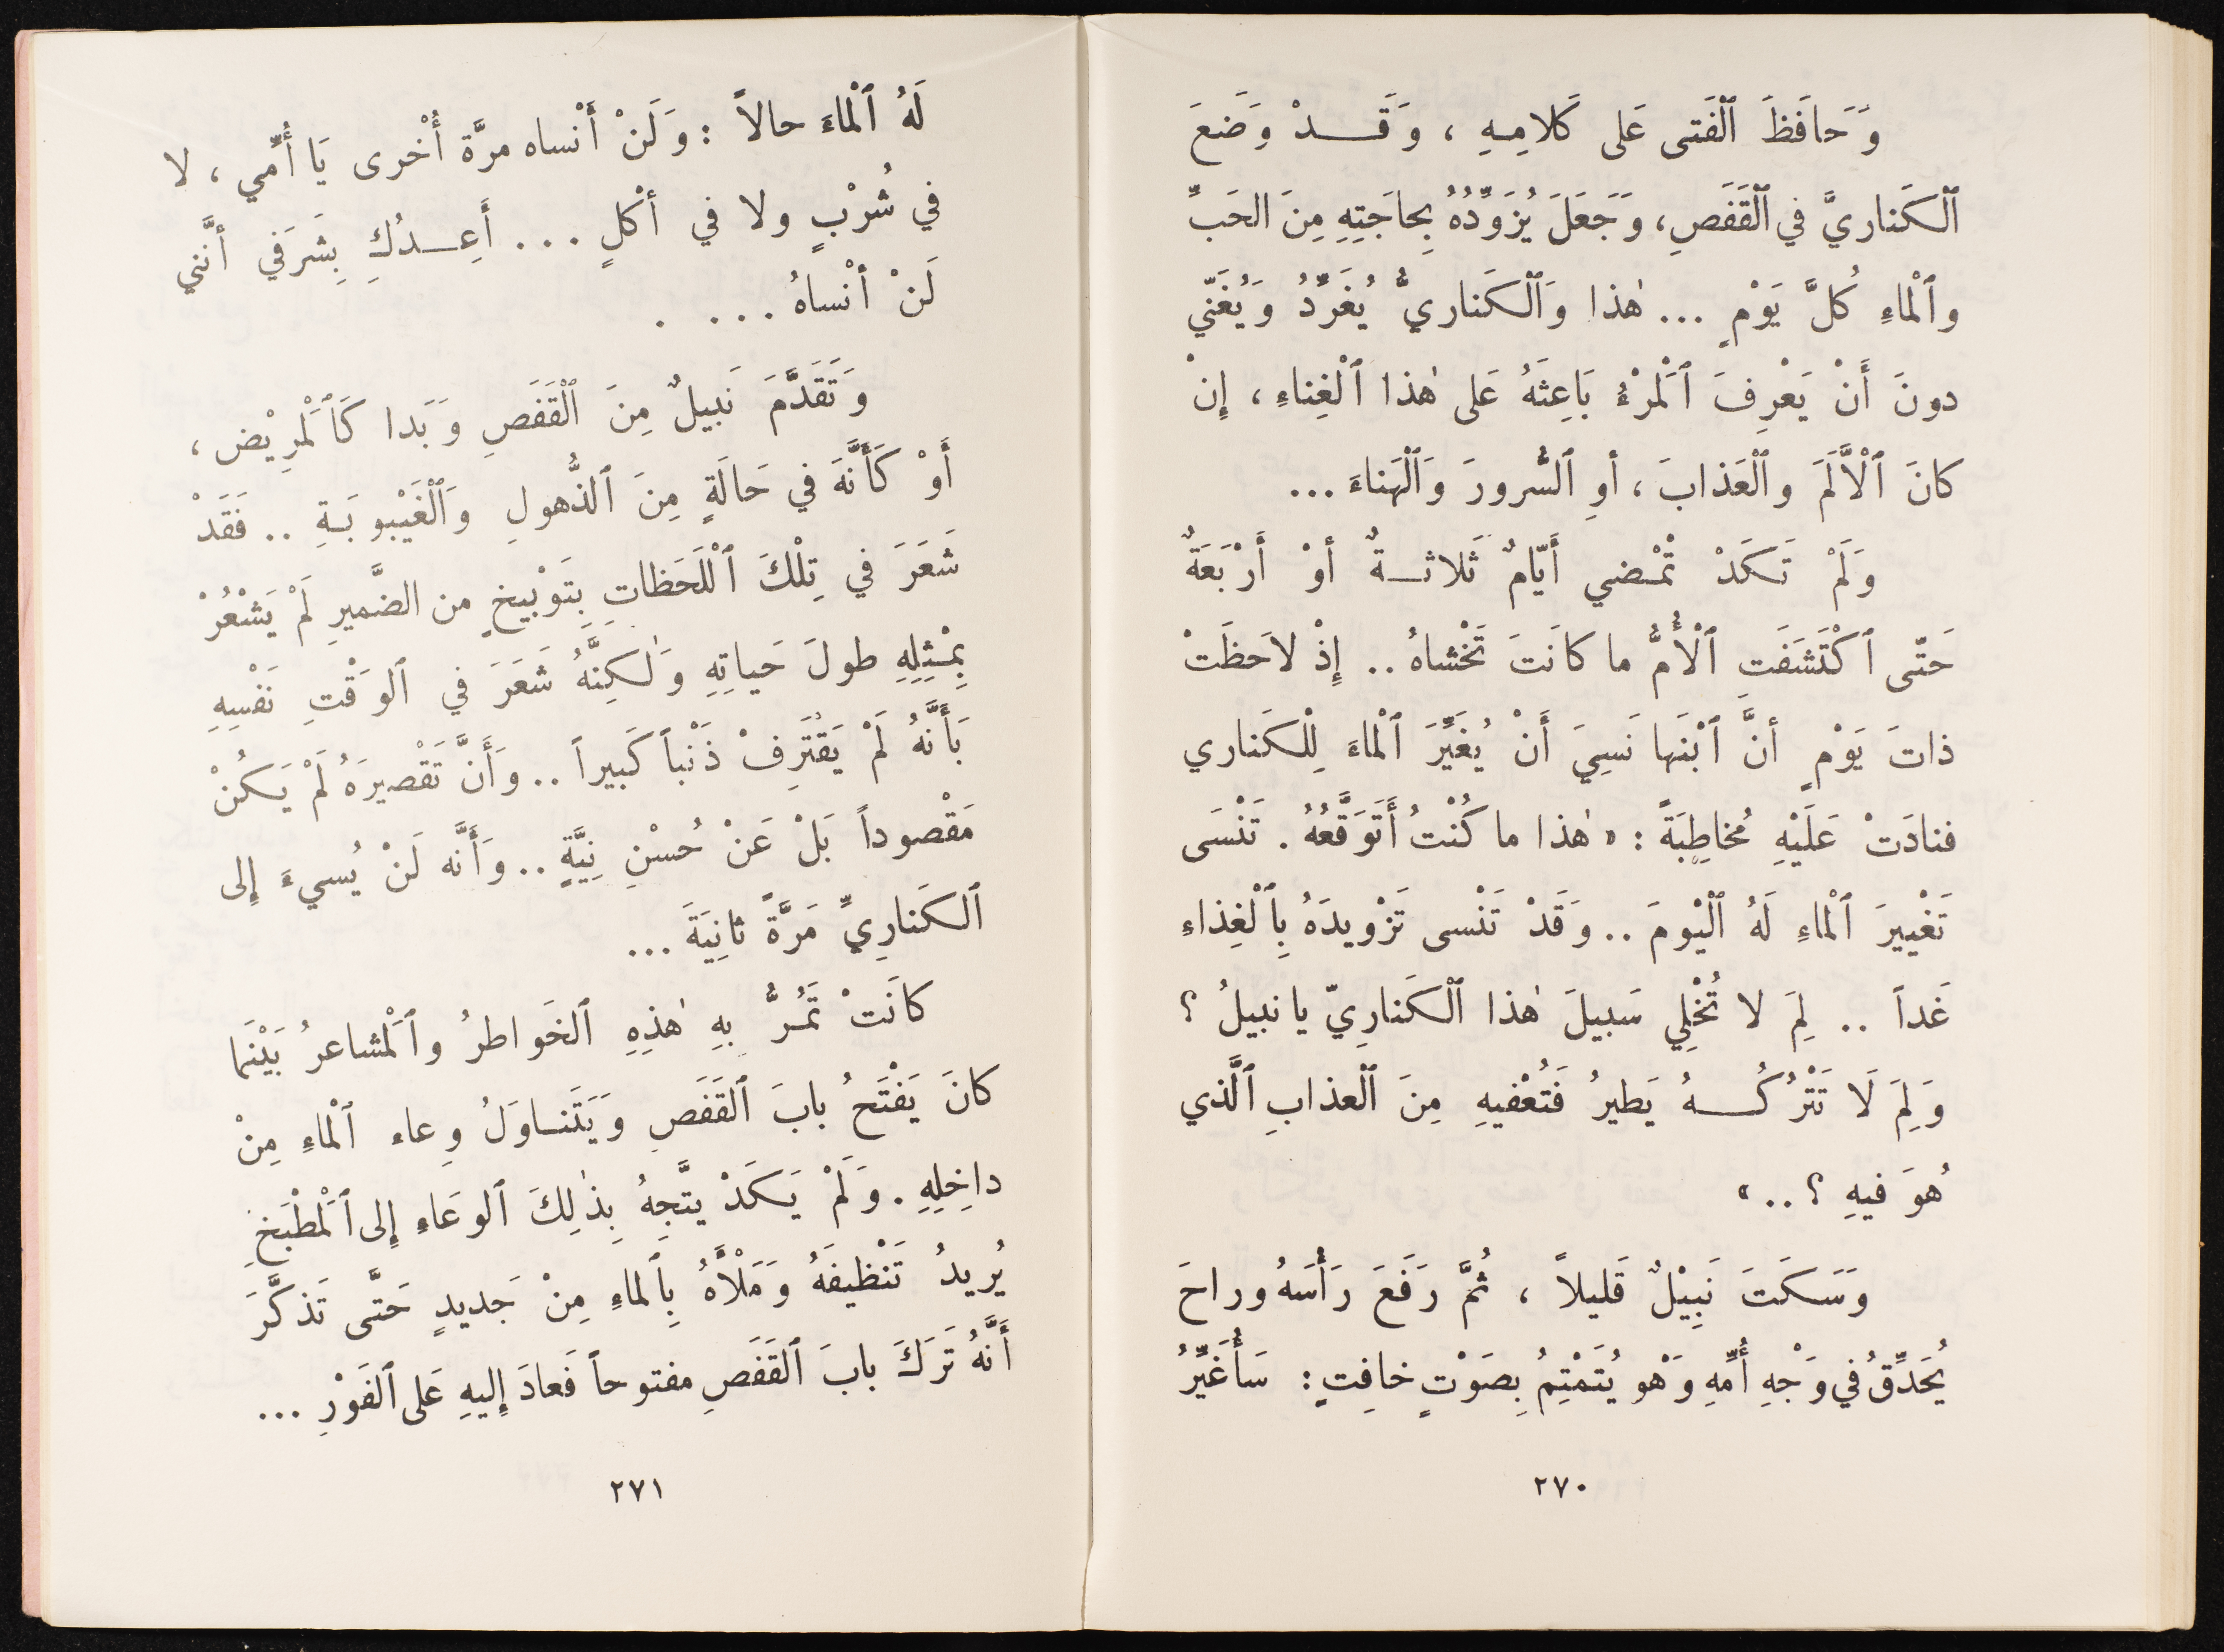 وَحَافَظَ ٱلْفَتى عَلى كَلامِهِ ، وَقَدْ وَضَعَ
ٱلْكَناريَّ في ٱلْقَفَصِ، وَجَعَلَ يُزَوِّدُهُ بِحاجَتِهِ مِنَ الحَبِّ
وٱلْماءِ كُلَّ يَوْمٍ ... هٰذا وَٱلْكَناريُّ يُغَرِّدُ وَيُغَنّي
دونَ أَنْ يَعْرِفَ ٱلْمَرْءُ بَاعِثَهُ عَلى هٰذا ٱلْغِناءِ ، إِنْ
كانَ ٱلْأَلَمَ وٱلْعَذابَ ، أوِ ٱلسُّرورَ وَٱلْهَناءَ ...
وَلَمْ تَكَدْ تْمْضي أَيّامٌ ثَلاثةٌ أوْ أَرْبَعَةٌ
حَتّى ٱكْتَشَفَتِ ٱلْأُمُّ ما كانَتَ تَخْشاهُ .. إِذْ لاَحظَتْ
ذاتَ يَوْمٍ أنَّ ٱبْنَها نَسِيَ أَنْ يُغَيِّرَ ٱلْماءَ لِلْكَناري
فنادَتْ عَلَيْهِ مُخاطِبَةً : « هٰذا ما كُنْتُ أَتَوَقَّعُهُ . تَنْسَى
تَغْييرَ ٱلْماءِ لَهُ ٱلْيْومَ .. وَقَدْ تَنْسى تَزْويدَهُ بِٱلْغِذاءِ
غَداً .. لِمَ لا تُخْلِي سَبيلَ هٰذا ٱلْكَنارِيّ يا نبيلُ ؟
وَلِمَ لَا تَتْرُكُهُ يَطيرُ فَتُعْفيهِ مِنَ ٱلْعذابِ ٱلَّذي
هُوَ فيهِ ؟ .. »
وَسَكَتَ نَبِيْلٌ قَليلاً ، ثُمَّ رَفَعَ رَأْسَهُ وراحَ
يُحَدِّقُ في وَجْهِ أُمِّهِ وَهْوَ يُتَمْتِمُ بِصَوْتٍ خافِتٍ : سَأُغَيِّرُ
٢٧٠
لَهُ ٱلْماءَ حالاً : وَلَنْ أَنْساه مرَّة أُخْرى يَا أُمّي ، لا
في شُرْبٍ ولا في أكْلٍ ... أَعِدُكِ بِشَرَفي أنَّني
لَنْ أنْساهُ ... .
وَتَقَدَّمَ نَبيلٌ مِنَ ٱلْقَفَصِ وَبَدا كَٱلْمَرِيْض ،
أَوْ كَأَنَّهَ في حَالَةٍ مِنَ ٱلذُّهولِ وَٱلْغَيْبوبَةِ .. فَقَدْ
شَعَرَ في تِلْكَ ٱلْلَحَظاتِ بِتَوْبيخٍ من الضَّميرِ لَمْ يَشْعُرْ
بِمْثِلِهِ طولَ حَياتِهِ وَلٰكِنَّهُ شَعَرَ في ٱلوَقْتِ نَفْسِهِ
بَأَنَّهُ لَمْ يَقْتَرِفْ ذَنْباً كَبيراً .. وَأَنَّ تَقْصيرَهُ لَمْ يَكُنْ
مَقْصوداً بَلْ عَنْ حُسْنِ نِيَّةٍ .. وَأَنَّه لَنْ يُسيءَ إِلى
ٱلكَنارِيِّ مَرَّةً ثانِيَةَ ...
كانَتْ تَمُرُّ بِهِ هٰذِهِ ٱلخَواطرُ وٱلْمَشاعرُ بَيْنَما
كانَ يَفْتَحُ بابَ ٱلقَفَصِ وَيَتَناوَلُ وِعاء ٱلْماءِ مِنْ
داخِلِهِ . وَلَمْ يَكَدْ يتَّجِهُ بِذٰلِكَ ٱلوعَاءِ إِلى ٱلْمَطْبَخِ
يُريدُ تَنْظيفَهُ وَمَلْأَهُ بِٱلماءِ مِنْ جَديدٍ حَتَّى تَذكَّرَ
أَنَّهُ تَرَكَ بابَ ٱلقَفَصِ مفتوحاً فَعادَ إِليهِ عَلى ٱلفَوْرِ ...
٢٧١